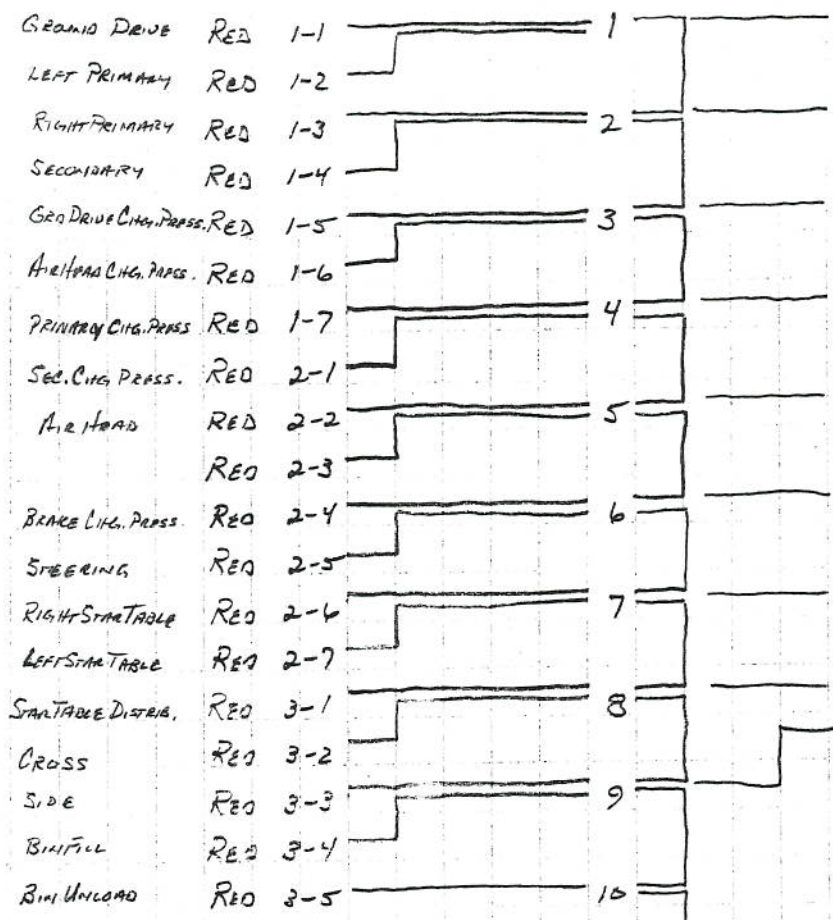 GROUND DRIVE RED 1-1 1
LEFT PRIMARY RED 1-2
RIGHT PRIMARY RED 1-3 2
SECONDARY RED 1-4
GRD DRIVE CHG. PRESS. RED 1-5 3
AIR HEAD CHG. PRESS. RED 1-6
PRIMARY CHG. PRESS RED 1-7 4
SEC. CHG PRESS. RED 2-1
AIR HEAD RED 2-2 5
RED 2-3
BRAKE CHG. PRESS. RED 2-4 6
STEERING RED 2-5
RIGHT STAR TABLE RED 2-6 7
LEFT STAR TABLE RED 2-7
STAR TABLE DISTRIB. RED 3-1 8
CROSS RED 3-2
SIDE RED 3-3 9
BIN FILL RED 3-4
BIN UNLOAD RED 3-5 10